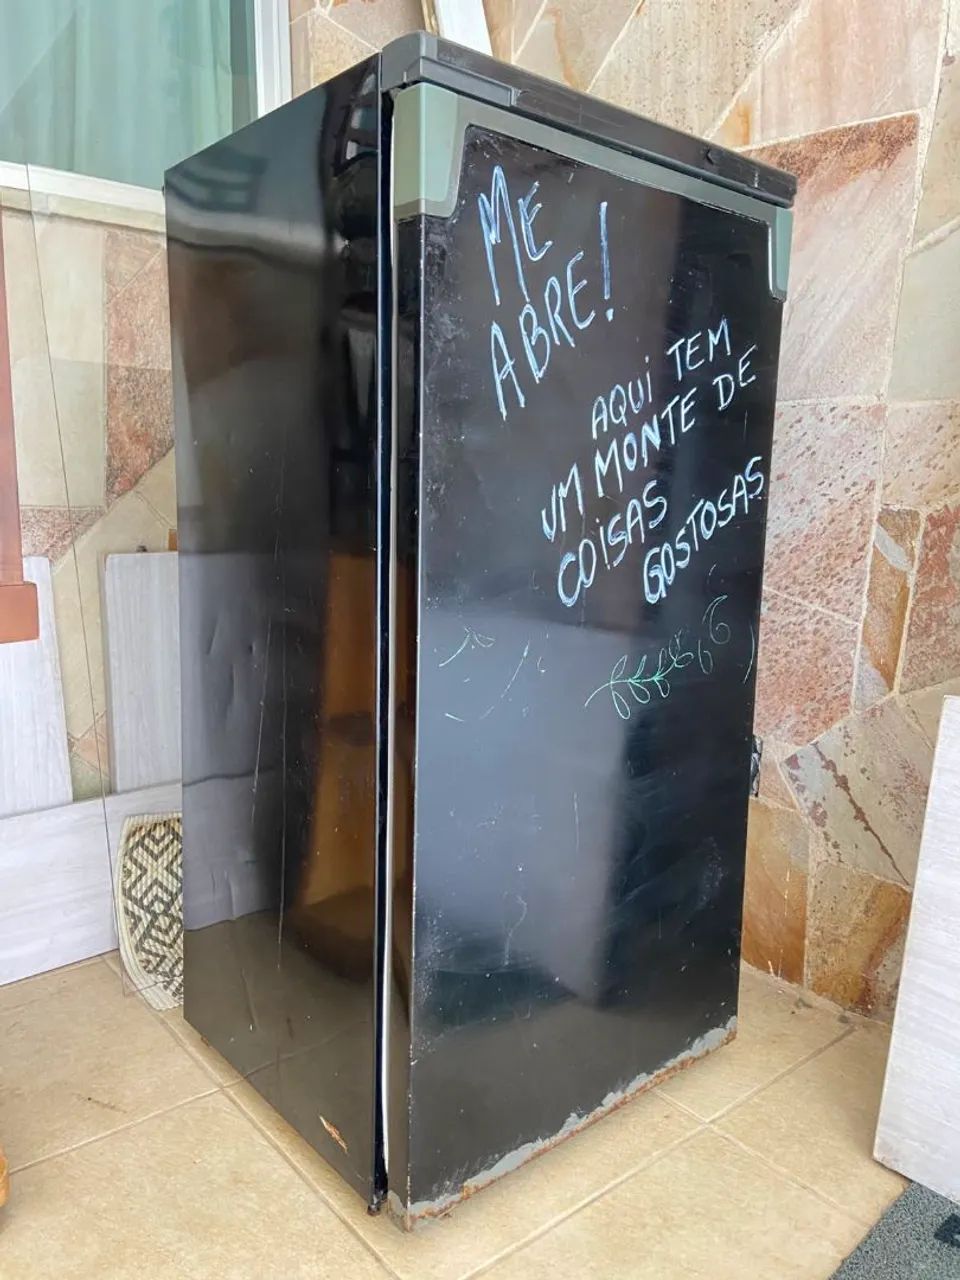 ME
ABRE!
AQUi TEM
UM MONTE DE
COiSAS
GOSTOSAS